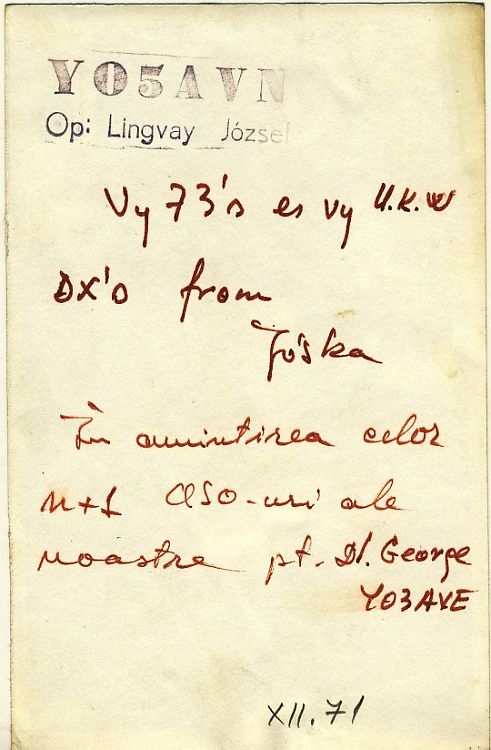 YO5AVN
Op: Lingvay József
Vy 73's es vy U.K.W
DX's from
Jóska
În amintirea celor
n+1 QSO-uri ale
noastre pt. Dl. George
YO3AVE
XII.71